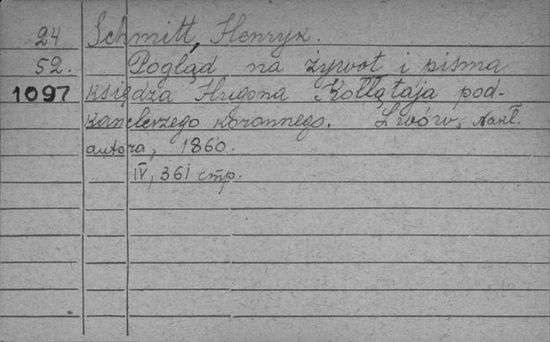 24 Schmitt, Henryk.
52. Pogląd na żywot i pisma
1097 księdza Hugona Kołłątaja pod-
kanclerzego koronnego. Lwów, nakł.
autora, 1860.
IV, 361 str.